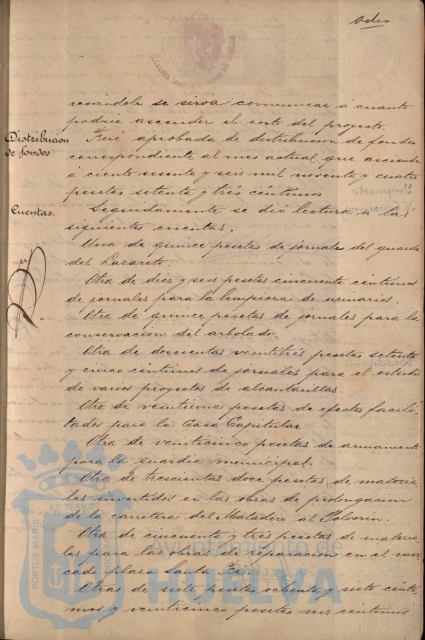 ocho
resándole se sirva comunicar á cuanto
podría ascender el costo del proyecto.
Distribución de fondos
Fué aprobada la distribución de fondos
correspondiente al mes actual que asciende
á ciento sesenta y seis mil noventa y cuatro
pesetas setenta y tres céntimos
Cuentas.
Seguidamente se dió lectura á las
siguientes cuentas.
Una de quince pesetas de jornales del guarda
del Lazareto.
Otra de diez y seis pesetas cincuenta céntimos
de jornales para la limpieza de urinarios.
Otra de quince pesetas de jornales para la
conservación del arbolado.
Otra de doscientas veintitrés pesetas setenta
y cinco céntimos de jornales para el estudio
de varios proyectos de alcantarillas.
Otra de veinticinco pesetas de efectos facili-
tados para la Casa Capitular
Otra de veinticinco pesetas de armamento
para la guardia municipal.
Otra de trescientas doce pesetas de materia-
les invertidos en las obras de prolongación
de la carretera del Matadero al Polvorín.
Otra de cincuenta y tres pesetas de materia-
les para las obras de reparación en el mer-
cado plaza Santa Fé.
Otras de siete pesetas ochenta y siete cénti-
mos y veinticinco pesetas seis céntimos
PORTUS MARIS
Ayuntamiento de
HUELVA